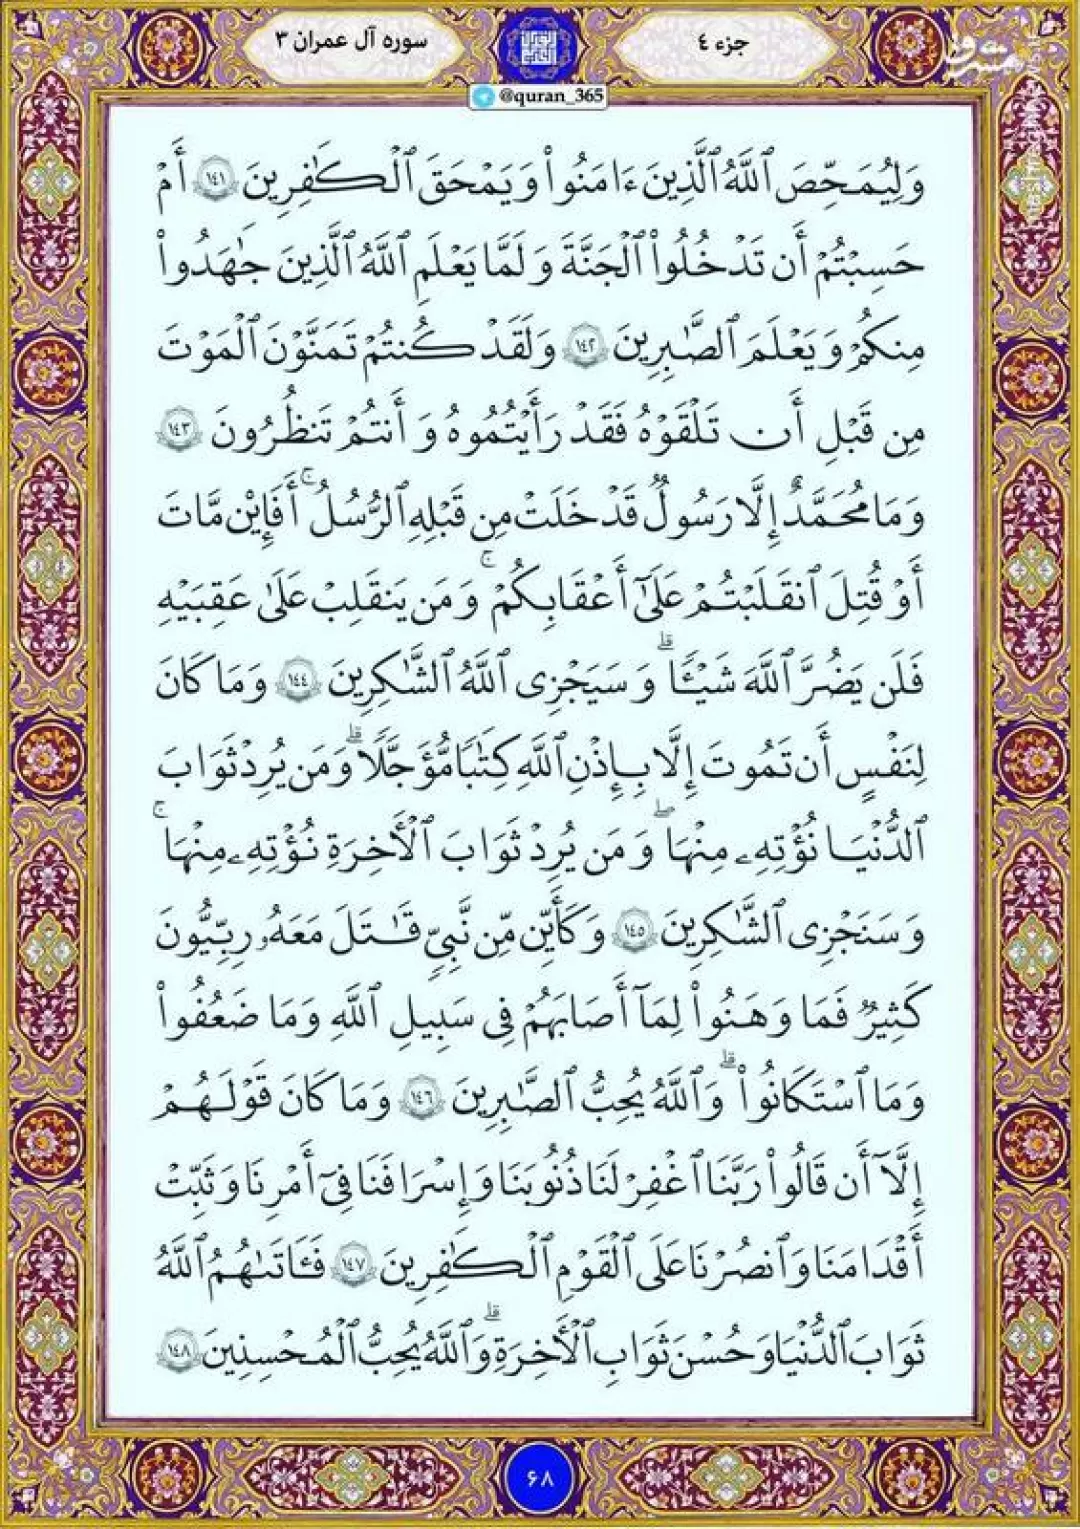 جزء ۴
سوره آل عمران ۳
@quran_365
وَلِيُمَحِّصَ ٱللَّهُ ٱلَّذِينَ ءَامَنُوا۟ وَيَمْحَقَ ٱلْكَٰفِرِينَ ١٤١ أَمْ
حَسِبْتُمْ أَن تَدْخُلُوا۟ ٱلْجَنَّةَ وَلَمَّا يَعْلَمِ ٱللَّهُ ٱلَّذِينَ جَٰهَدُوا۟
مِنكُمْ وَيَعْلَمَ ٱلصَّٰبِرِينَ ١٤٢ وَلَقَدْ كُنتُمْ تَمَنَّوْنَ ٱلْمَوْتَ
مِن قَبْلِ أَن تَلْقَوْهُ فَقَدْ رَأَيْتُمُوهُ وَأَنتُمْ تَنظُرُونَ ١٤٣
وَمَا مُحَمَّدٌ إِلَّا رَسُولٌ قَدْ خَلَتْ مِن قَبْلِهِ ٱلرُّسُلُ ۚ أَفَإِي۟ن مَّاتَ
أَوْ قُتِلَ ٱنقَلَبْتُمْ عَلَىٰٓ أَعْقَٰبِكُمْ ۚ وَمَن يَنقَلِبْ عَلَىٰ عَقِبَيْهِ
فَلَن يَضُرَّ ٱللَّهَ شَيْـًٔا ۗ وَسَيَجْزِى ٱللَّهُ ٱلشَّٰكِرِينَ ١٤٤ وَمَا كَانَ
لِنَفْسٍ أَن تَمُوتَ إِلَّا بِإِذْنِ ٱللَّهِ كِتَٰبًا مُّؤَجَّلًا ۗ وَمَن يُرِدْ ثَوَابَ
ٱلدُّنْيَا نُؤْتِهِۦ مِنْهَا ۖ وَمَن يُرِدْ ثَوَابَ ٱلْأَخِرَةِ نُؤْتِهِۦ مِنْهَا ۚ
وَسَنَجْزِى ٱلشَّٰكِرِينَ ١٤٥ وَكَأَيِّن مِّن نَّبِىٍّ قَٰتَلَ مَعَهُۥ رِبِّيُّونَ
كَثِيرٌ فَمَا وَهَنُوا۟ لِمَآ أَصَابَهُمْ فِى سَبِيلِ ٱللَّهِ وَمَا ضَعُفُوا۟
وَمَا ٱسْتَكَانُوا۟ ۗ وَٱللَّهُ يُحِبُّ ٱلصَّٰبِرِينَ ١٤٦ وَمَا كَانَ قَوْلَهُمْ
إِلَّآ أَن قَالُوا۟ رَبَّنَا ٱغْفِرْ لَنَا ذُنُوبَنَا وَإِسْرَافَنَا فِىٓ أَمْرِنَا وَثَبِّتْ
أَقْدَامَنَا وَٱنصُرْنَا عَلَى ٱلْقَوْمِ ٱلْكَٰفِرِينَ ١٤٧ فَـَٔاتَىٰهُمُ ٱللَّهُ
ثَوَابَ ٱلدُّنْيَا وَحُسْنَ ثَوَابِ ٱلْأَخِرَةِ ۗ وَٱللَّهُ يُحِبُّ ٱلْمُحْسِنِينَ ١٤٨
۶۸